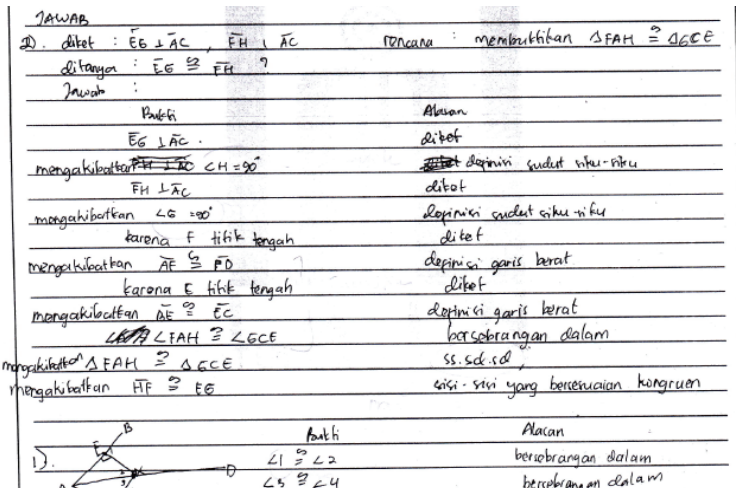 JAWAB
2). diket : EG ⊥ AC , FH ⊥ AC rencana : membuktikan ΔFAH ≅ ΔGCE
ditanya : EG ≅ FH ?
Jawab :
Bukti Alasan
EG ⊥ AC . diket
mengakibatkan ∠H = 90° depinisi sudut siku-siku
FH ⊥ AC diket
mengakibatkan ∠G = 90° depinisi sudut siku-siku
karena F titik tengah diket
mengakibatkan AF ≅ FD depinisi garis berat
karena E titik tengah diket
mengakibatkan AE ≅ EC depinisi garis berat
∠FAH ≅ ∠GCE bersebrangan dalam
mengakibatkan ΔFAH ≅ ΔGCE ss.sd.sd
mengakibatkan HF ≅ EG sisi-sisi yang bersesuaian kongruen
B Bukti Alasan
1). E D ∠1 ≅ ∠2 bersebrangan dalam
∠3 ≅ ∠4 bersebrangan dalam